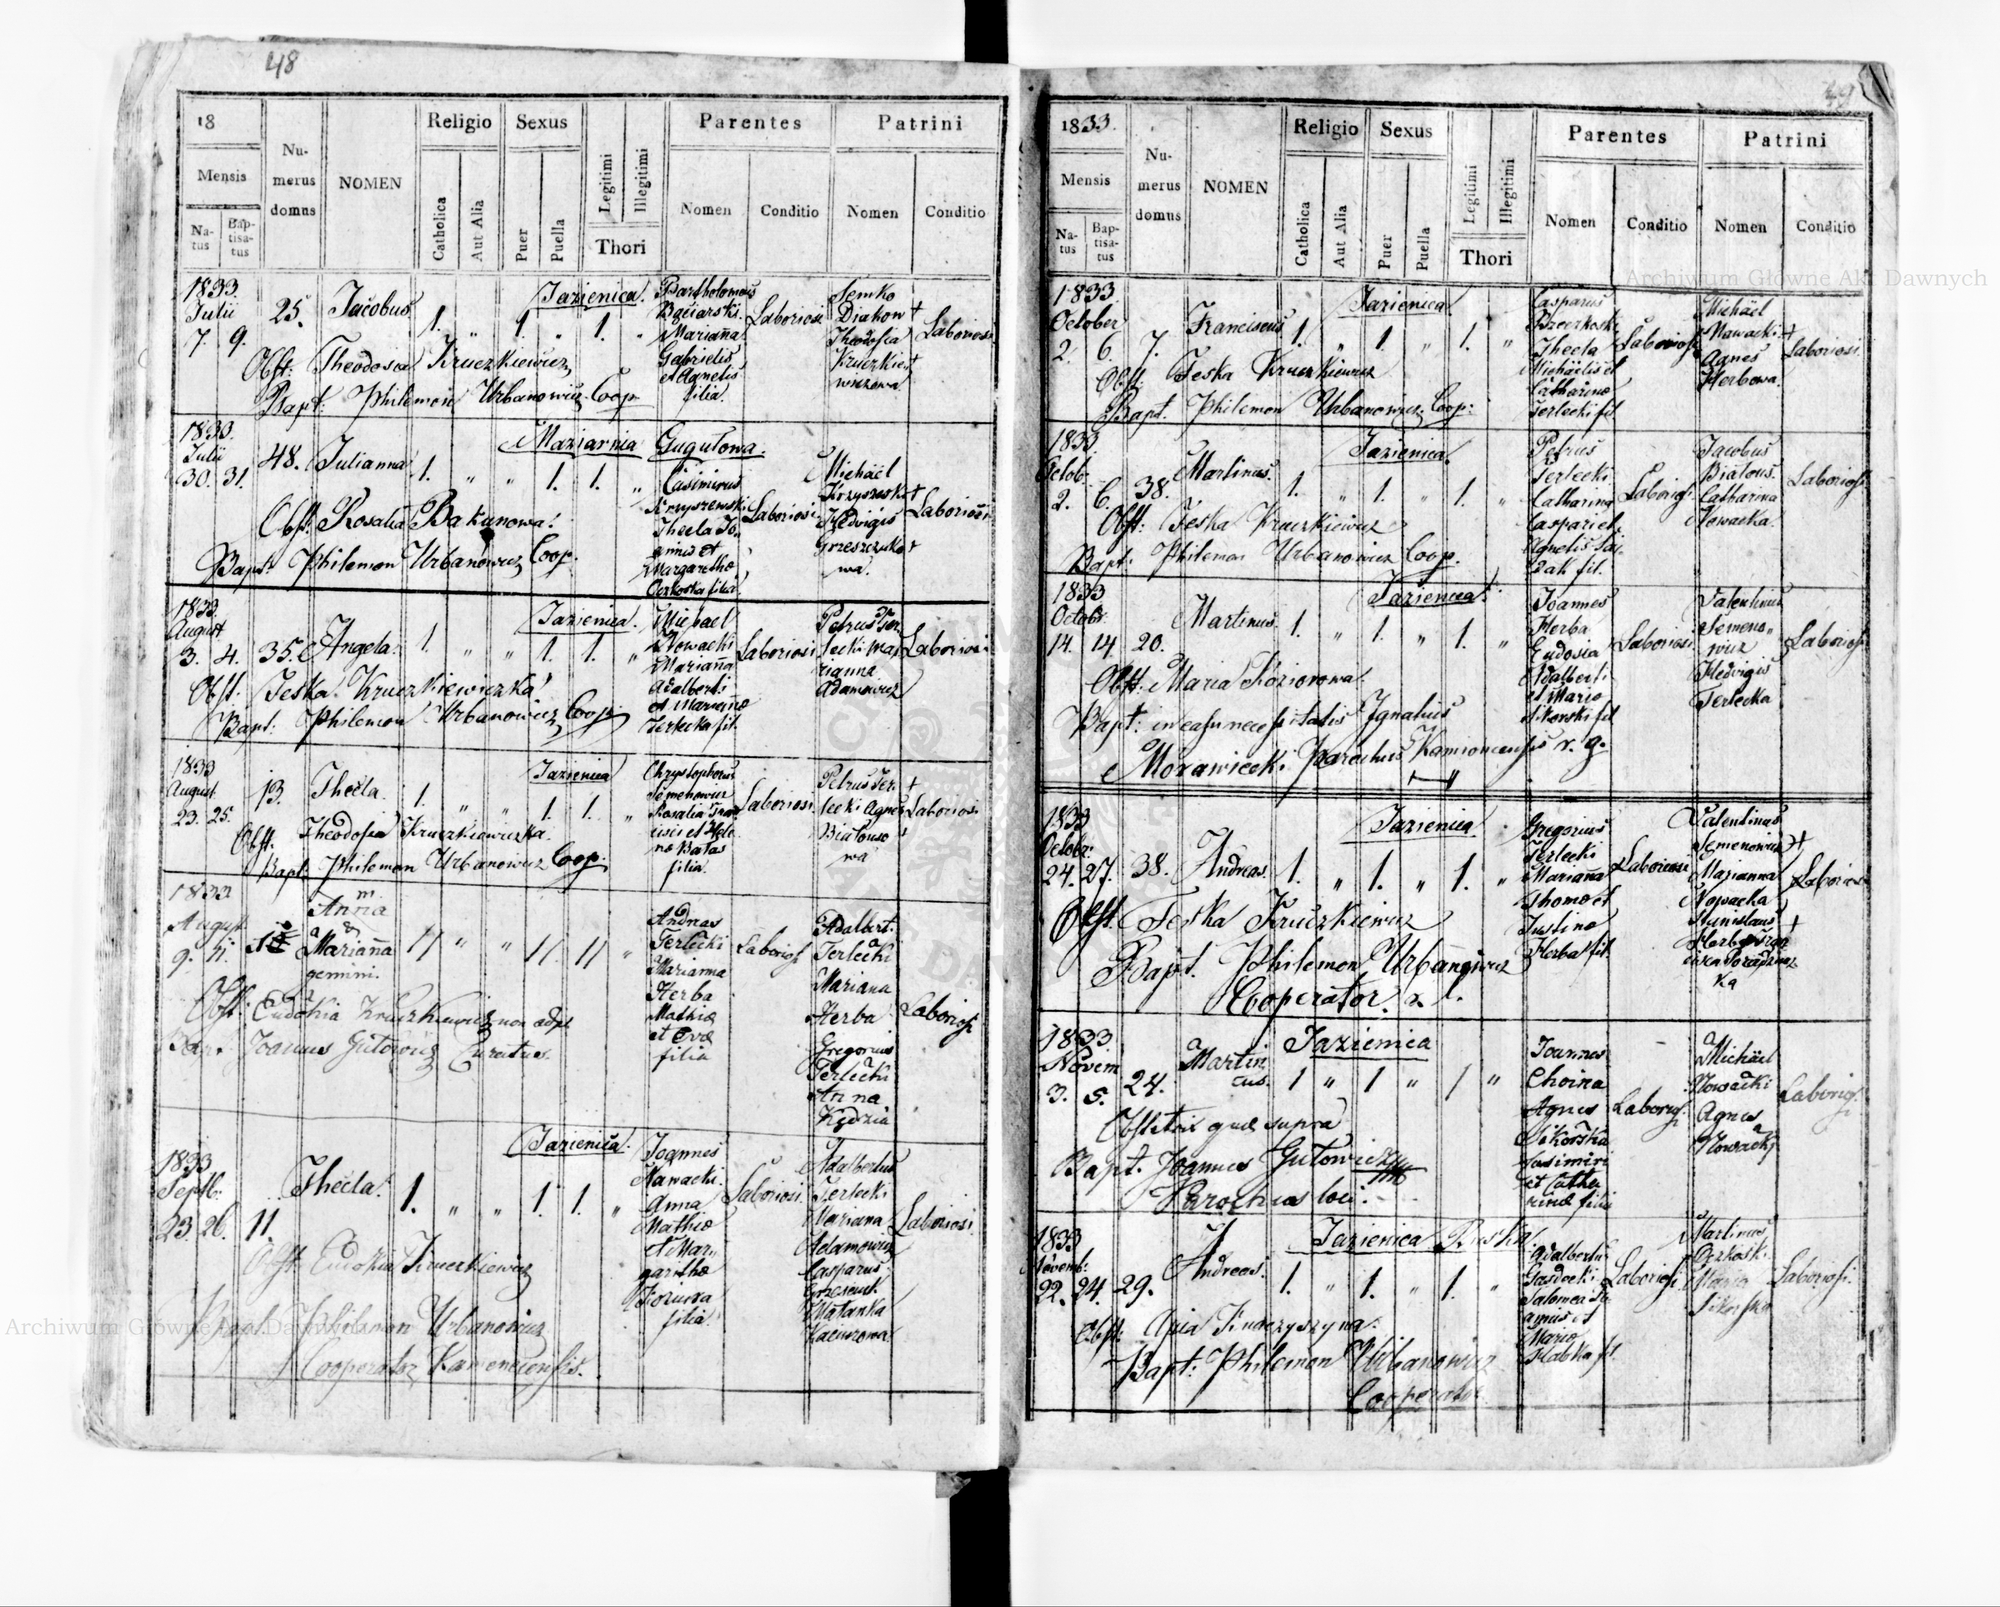 48
18
Mensis
Na-
tus
Bap-
tisa-
tus
Nu-
merus
domus
NOMEN
Religio
Catholica
Aut Alia
Sexus
Puer
Puella
Legitimi
Illegitimi
Thori
Parentes
Nomen
Conditio
Patrini
Nomen
Conditio
1833.
Julii
7. 9.
25.
Jacobus
1. " 1 " 1. "
Jazienica.
Bartholomeus
Marianna
Gabrielis
et Agnetis
filia.
Laboriosi
Semko
Diakon +
Theodosia
Kruczkie+
wiczowa
Laboriosi
Obst: Theodosia Kruczkiewicz
Bapt: Philemon Urbanowicz Coop
1833.
Julii
30. 31.
48. Julianna
1. " " 1. 1. "
Maziarnia Gugułowa.
Casimirus
Kryszewski
Thecla Jo,
annis et
Margarethæ
filia
Laboriosi
Michael
Hedvigis
wa.
Laboriosi
Obst: Rosalia Bakunowa.
Bapt: Philemon Urbanowicz Coop.
1833.
August.
3. 4.
35. Angela.
1. " " 1. 1. "
Jazienica.
Michael
Nowacki
Marianna
Adalberti
et Mariannæ
Terlecka fil.
Laboriosi
Petrus Ter
lecki Ma,
rianna
Adamowicz
Laboriosi
Obst. Teska Kruczkiewiczka
Bapt: Philemon Urbanowicz Coop:
1833
August
23. 25.
13. Thecla.
1. " " 1. 1. "
Jazienica
Chrystophorus
Semenowicz
Rosalia Fran
cisci et Hele
næ Batas
filia.
Laboriosi.
Petrus Ter +
lecki Agnes
Białouso
wa
Laboriosi
Obst. Theodosia Kruczkiewiczka.
Bapt. Philemon Urbanowicz Coop.
1833
August
9. 11.
Anna
&
Marianna
gemini.
11 " " 11. 11 "
Andreas
Terlecki
Marianna
Herba
Mathiæ
et Evæ
filia
Laboriosi
Adalbert.
Terlecki
Mariana
Herba
Gregorius
Terlecki
Anna
Kędzia
Laboriosi
Obst: Eudokia Kruczkiewicz non adpl
Bapt. Joannes Gutowicz Curatus.
1833
Septb:
23. 26.
11.
Thecla.
1. " " 1. 1. "
Jazienica.
Joannes
Nawacki.
Anna
Mathiæ
et Mar,,
garithæ
filia.
Laboriosi.
Adalbertus
Terlecki
Mariana
Adamowicz
Casparus
Laboriosi
Obst. Eudoxia Kruczkiewicz
Bapt. Philemon Urbanowicz
Cooperator Kamenecensis.
49
1833.
Mensis
Na-
tus
Bap-
tisa-
tus
Nu-
merus
domus
NOMEN
Religio
Catholica
Aut Alia
Sexus
Puer
Puella
Legitimi
Illegitimi
Thori
Parentes
Nomen
Conditio
Patrini
Nomen
Conditio
1833
October
2. 6.
7.
Franciscus
1. " 1 " 1. "
Jazienica.
Casparus
Thecla
Michaelis et
Catharinæ
Terlecki fil
Laboriosi
Michael
Nawacki +
Agnes
Herbowa.
Laboriosi.
Obst: Teska Kruczkiewicz
Bapt. Philemon Urbanowicz. Coop:
1833
Octob.
2. 6.
38. Martinus.
1. " 1. " 1. "
Jazienica.
Petrus
Terlecki
Catharina
Caspari et
Agnetis
fil.
Laboriosi.
Jacobus
Białous.
Catharina
Nowacka.
Laboriosi.
Obst: Teska Kruczkiewicz
Bapt: Philemon Urbanowicz Coop.
1833
Octobr.
14. 14
20.
Martinus.
1. " 1. " 1. "
Jazienica.
Joannes
Herba
Eudosia
Adalberti
et Mariæ
Sikorski fil
Laboriosi.
Valentinus
Semeno,,
wicz
Hedvigis
Terlecka
Laboriosi.
Obst: Maria Koziorowa.
Bapt: in casu necessitatis Ignatius
Morawiecki Parochus Kamioncensis r. g.
1833
Octobr.
24. 27.
38. Andreas.
1. " 1. " 1. "
Jazienica
Gregorius
Terlecki
Marianna
Thomæ et
Justinæ
Herba fil.
Laboriosi
Valentinus
Semenowicz +
Marianna
Nowacka
Stanislaus +
ka
Laboriosi
Obst. Teska Kruczkiewicz
Bapt. Philemon Urbanowicz
Cooperator r. l.
1833
Novem
3. 5.
24.
Martin
us.
1 " 1 " 1 "
Jazienica
Joannes
Choina
Agnes
Sikorska
Casimiri
et Catha
rinæ filii
Laboriosi.
Michael
Nowacki
Agnes
Nowacki
Laboriosi.
Obstetrix quæ supra
Bapt. Joannes Gutowicz
Parochus loci.
1833
Novemb:
22. 24.
29.
Andreas.
1. " 1. " 1. "
Jazienica Ruska
Adalbertus
Salomea Jo
annis et
Mariæ
fil.
Laboriosi
Martinus
Maria
Sikorska
Laboriosi.
Bapt: Philemon Urbanowicz
Cooperator
Archiwum Główne Akt Dawnych
Archiwum Główne Akt Dawnych